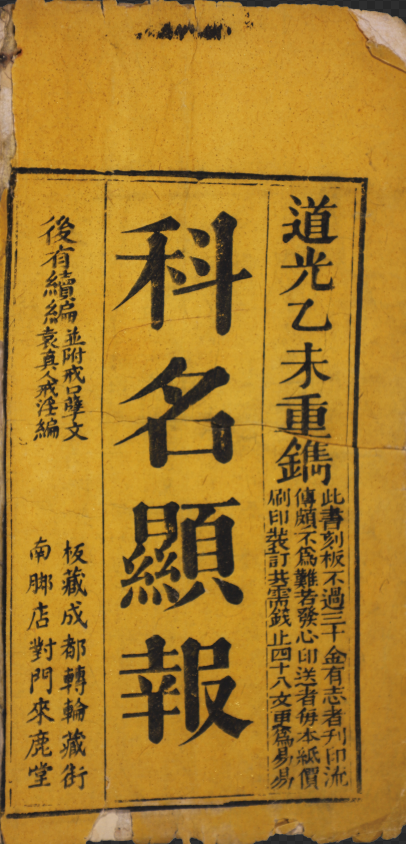 道光乙未重鐫
此書刻板不過三十金有志者刋印流
傳頗不爲難若發心印送者每本紙價
刷印裝訂共需錢止四十八文更爲易易
科名顯報
後有續編
並附戒口孽文
袁真人戒淫編
板藏成都轉輪藏街
南腳店對門來鹿堂